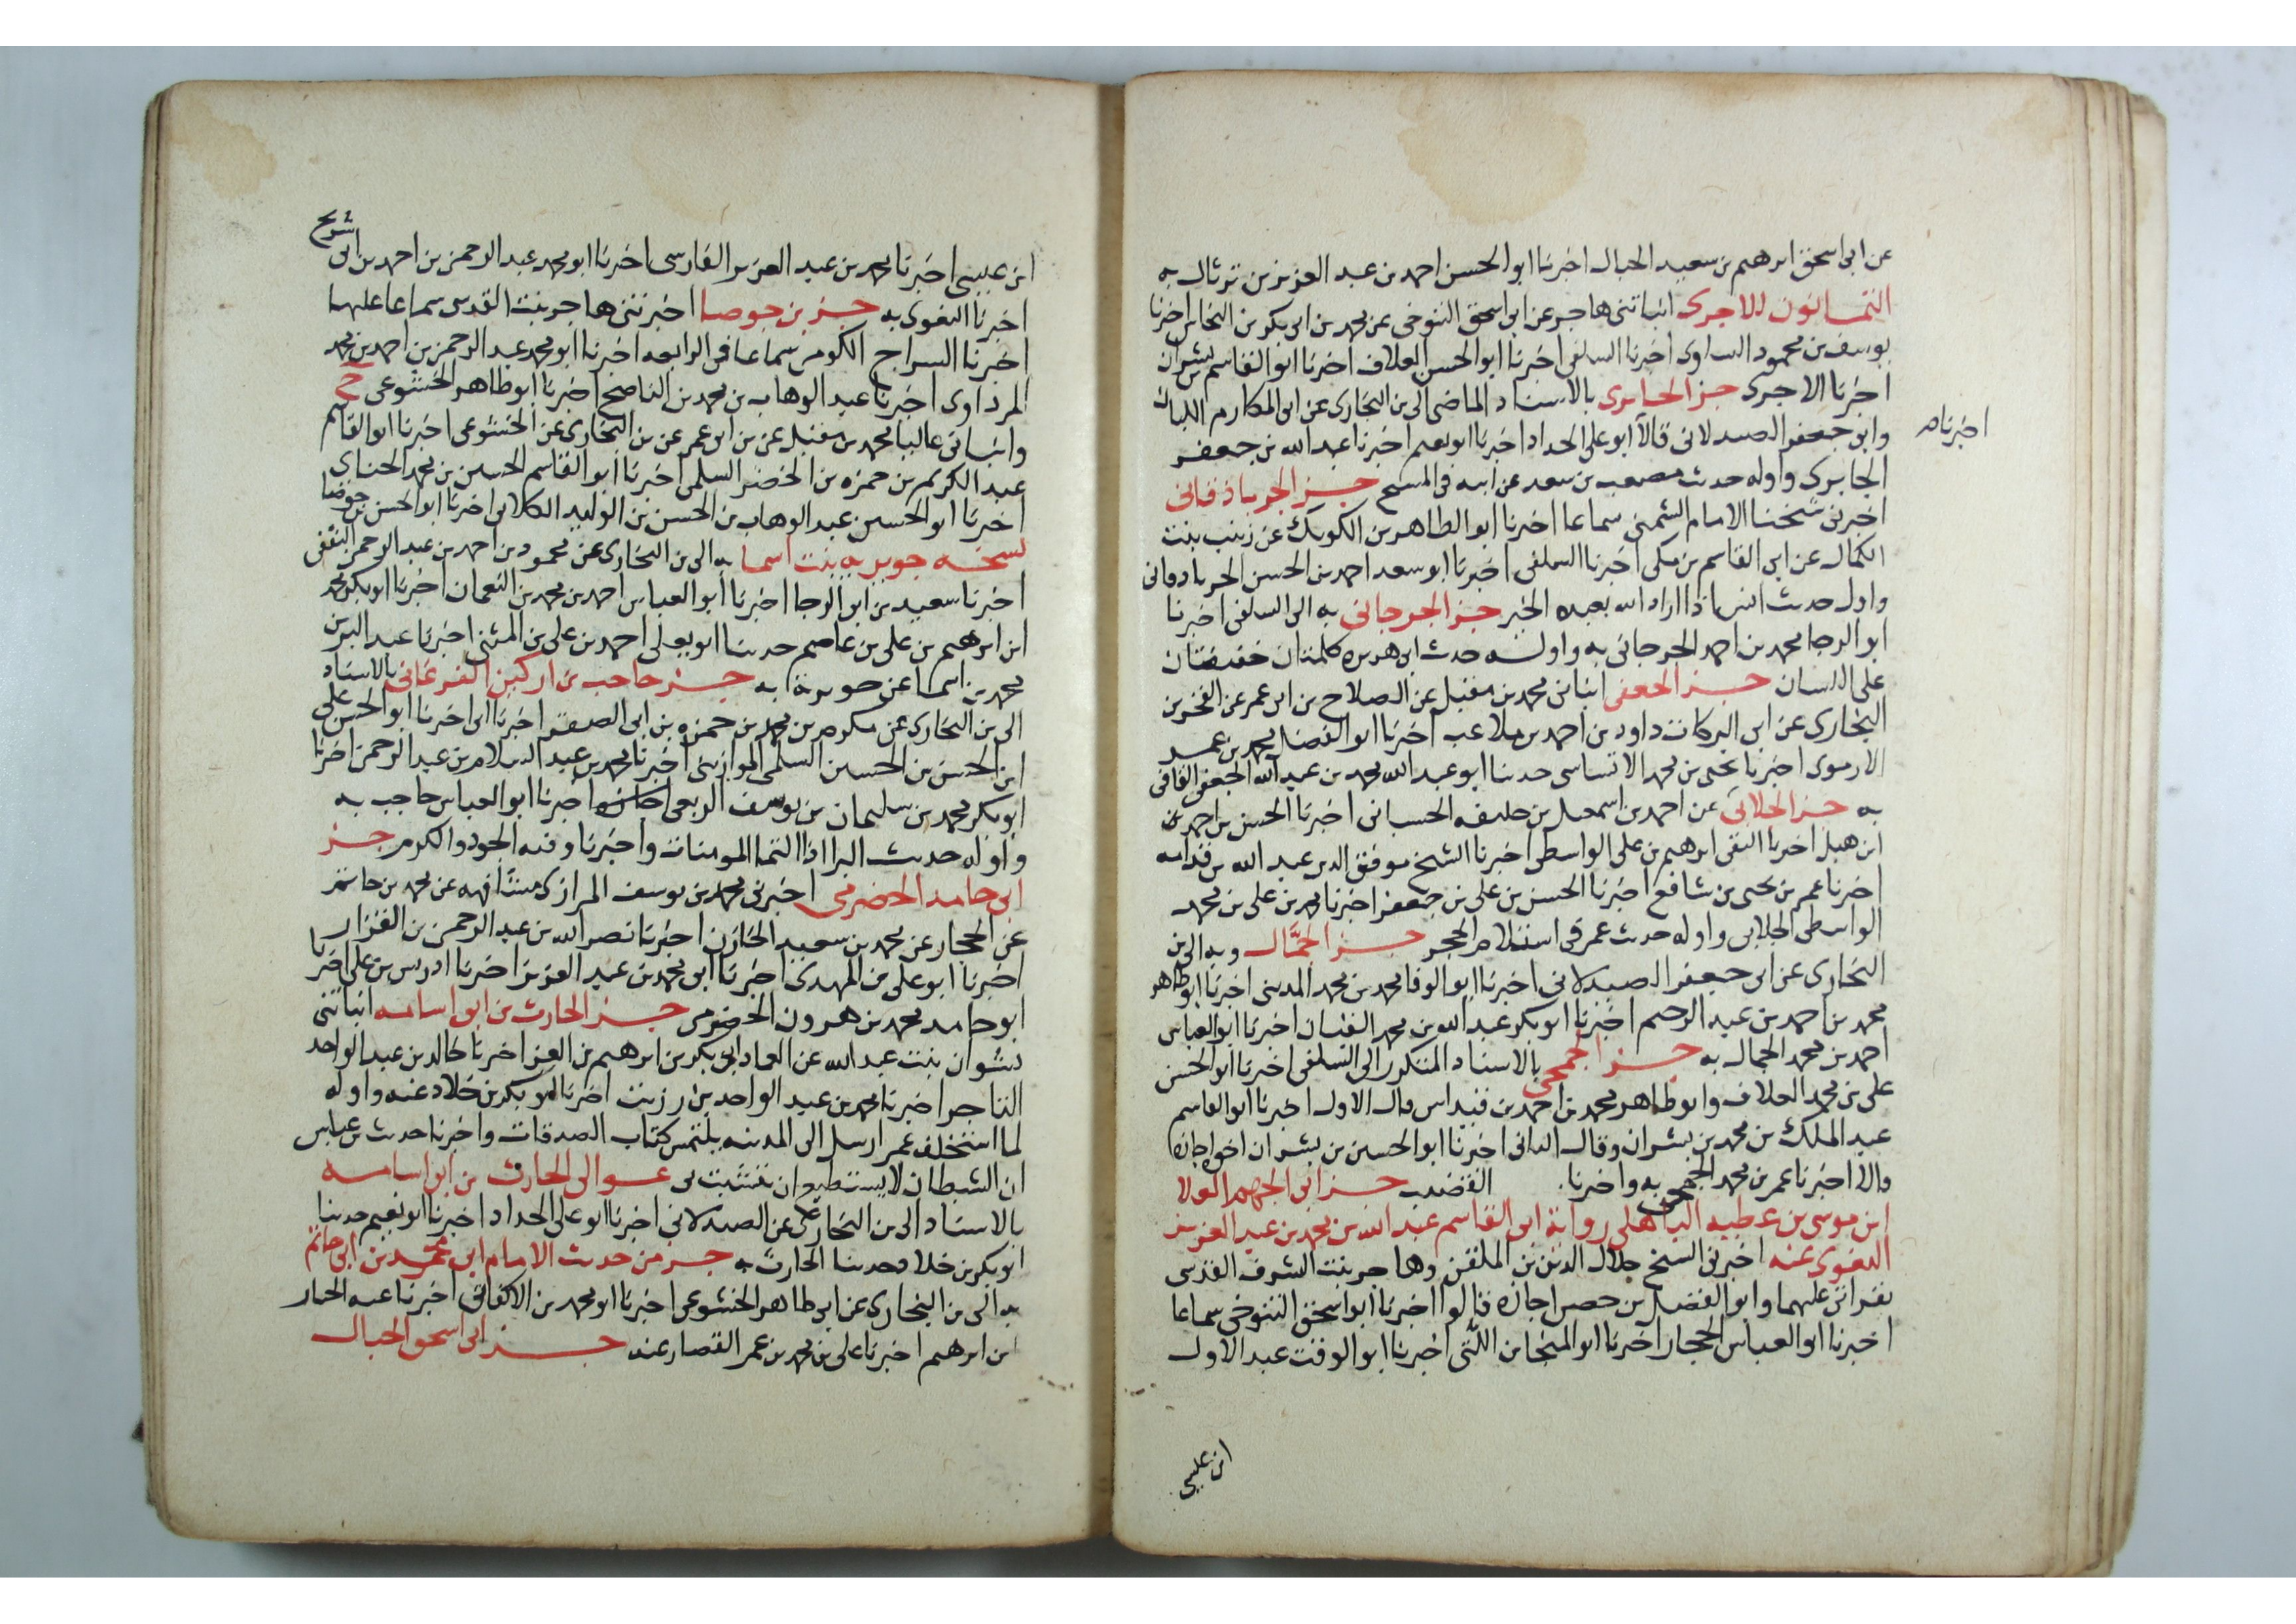 عن ابى اسحق ابرهيم بن سعيد الحبال اخبرنا ابو الحسن احمد بن عبد العزيز بن ثرثال به
الثمانون للاجرى انباتنى هاجر عن ابى اسحق التنوخى عن محمد بن ابى بكر بن النحاس اخبرنا
يوسف بن محمود الساوى اخبرنا السلفى اخبرنا ابو الحسن العلاف اخبرنا ابو القاسم بن بشران
اخبرنا الاجرى جز الجابرى بالاسناد الماضى الى بن البخارى عن ابى المكارم اللبان
وابن جعفر الصيدلانى قالا ابو على الحداد اخبرنا ابو نعيم اخبرنا عبد الله بن جعفر
اخبرنا
الجابرى واوله حديث مصعب بن سعد عن ابيه فى المسح جز الجرباذقانى
اخبرنى شيخنا الامام الشمنى سماعا اخبرنا ابو الطاهر بن الكويك عن زينب بنت
الكمال عن ابى القاسم بن مكى اخبرنا السلفى اخبرنا ابو سعد احمد بن الحسن الجرباذقانى
واول حديث انس اذا اراد الله بعبده الخير جز الجرجانى به الى السلفى اخبرنا
ابو الرجا محمد بن احمد الجرجانى به واوله حديث ابى هريره كلمتان خفيفتان
على اللسان جز الجعفى انبانى محمد بن مقبل عن الصلاح بن ابى عمر عن الفخر بن
البخارى عن ابى البركات داود بن احمد بن ملاعب اخبرنا ابو الفضل محمد بن عمر
الارموى اخبرنا يحيى بن محمد الاقساسى حدثنا ابو عبد الله محمد بن عبد الله الجعفى القاضى
به جز الجلابى عن احمد بن اسمعيل بن خليفه الحسبانى اخبرنا الحسن بن احمد بن
ابن هبل اخبرنا التقى ابرهيم بن على الواسطى اخبرنا الشيخ موفق الدين عبد الله بن قدامه
اخبرنا عمر بن يحيى بن شافع اخبرنا الحسن بن على بن جعفر اخبرنا محمد بن على بن محمد
الواسطى الجلابى واوله حديث عمر فى استلام الحجر جز الجمَّال وبه الى بن
البخارى عن ابى جعفر الصيدلانى اخبرنا ابو الوفا محمد بن محمد المدينى اخبرنا ابو طاهر
محمد بن احمد بن عبد الرحيم اخبرنا ابو بكر عبد الله بن محمد القباب اخبرنا ابو العباس
احمد بن محمد الجمال به جز الجمحى بالاسناد المتكرر الى السلفى اخبرنا ابو الحسن
على بن محمد العلاف وابو طاهر محمد بن احمد بن قيداس قال الاول اخبرنا ابو القاسم
عبد الملك بن محمد بن بشران وقال الثانى اخبرنا ابو الحسين بن بشران اخوه اجازة
قالا اخبرنا عمر بن محمد الجمحى به واخبرنا. القضيب جز ابى الجهم العلا
ابن موسى بن عطيه الباهلى رواية ابى القاسم عبد الله بن محمد بن عبد العزيز
البغوى عنه اخبرنى الشيخ جلال الدين بن الملقن وهاجر بنت الشرف القدسى
بقراتى عليهما وابو الفضل بن حصن اجازه قالوا اخبرنا ابو اسحق التنوخى سماعا
اخبرنا ابو العباس الحجار اخبرنا ابو المنجا بن اللتى اخبرنا ابو الوقت عبد الاول
ابن عيسى
ابن عيسى اخبرنا محمد بن عبد العزيز الفارسى اخبرنا ابو محمد عبد الرحمن بن احمد بن ابى شريح
اخبرنا البغوى به جز بن جوصا اخبرتنى هاجر بنت القدسى سماعا عليها
اخبرنا السراج الكومى سماعا فى الرابعه اخبرنا ابو محمد عبد الرحمن بن احمد بن محمد
المرداوى اخبرنا عبد الوهاب بن محمد بن الناصح اخبرنا ابو طاهر الخشوعى ح
وانبانى عاليا محمد بن مقبل عن بن ابى عمر عن بن البخارى عن الخشوعى اخبرنا ابو القاسم
عبد الكريم بن حمزه بن الخضر السلمى اخبرنا ابو القاسم الحسين بن محمد الحناى
اخبرنا ابو الحسين عبد الوهاب بن الحسن بن الوليد الكلابى اخبرنا ابو الحسن بن جوصا
نسخه جويريه بنت اسما به الى بن البخارى عن محمود بن احمد بن عبد الرحمن الثقفى
اخبرنا سعيد بن ابى الرجا اخبرنا ابو العباس احمد بن محمد بن النعمان اخبرنا ابو بكر محمد
ابن ابرهيم بن على بن عاصم حدثنا ابو يعلى احمد بن على بن المثنى اخبرنا عبد الله بن
محمد بن اسما عن جويرية به جز حاجب بن اركين الفرغانى بالاسناد
الى بن البخارى عن مكرم بن محمد بن حمزه بن ابى الصقر اخبرنا ابى اخبرنا ابو الحسن على
ابن الحسن بن الحسين السلمى الموازينى اخبرنا محمد بن عبد السلام بن عبد الرحمن اخبرنا
ابو بكر محمد بن سليمان بن يوسف الربعى اجازه اخبرنا ابو العباس حاجب به
واوله حديث البرا اذا التقا المومنان واخبرنا وفيه الجود والكرم جز
ابى حامد الحضرمى اخبرنى محمد بن يوسف المرازى مشافهه عن محمد بن حاتم
عن الحجار عن محمد بن سعيد الخازن اخبرنا نصر الله بن عبد الرحمن بن القزاز
اخبرنا ابو على بن المهدى اخبرنا ابى محمد بن عبد العزيز اخبرنا ادريس بن على اخبرنا
ابو حامد محمد بن هرون الحضرمى جز الحارث بن ابى اسامه انباتنى
نشوان بنت عبد الله عن العماد ابى بكر بن ابرهيم بن العز اخبرنا خالد بن عبد الواحد
التاجر اخبرنا محمد بن عبد الواحد بن رزيت اخبرنا ابو بكر بن خلاد عنه واوله
لما استخلف عمر ارسل الى المدينه يلتمس كتاب الصدقات واخرنا حديث بن عباس
ان الشيطان لا يستطيع ان يتشبث بى عوالى الحارث بن ابى اسامه
بالاسناد الى بن البخارى عن الصيدلانى اخبرنا ابو على الحداد اخبرنا ابو نعيم حدثنا
ابو بكر بن خلاد حدثنا الحارث به جز من حديث الامام ابى محمد بن ابى حاتم
به الى بن البخارى عن ابى طاهر الخشوعى اخبرنا ابو محمد بن الاكفانى اخبرنا عبد الجبار
بن ابرهيم اخبرنا على بن محمد بن عمر القصار عنه جز ابى اسحق الحبال